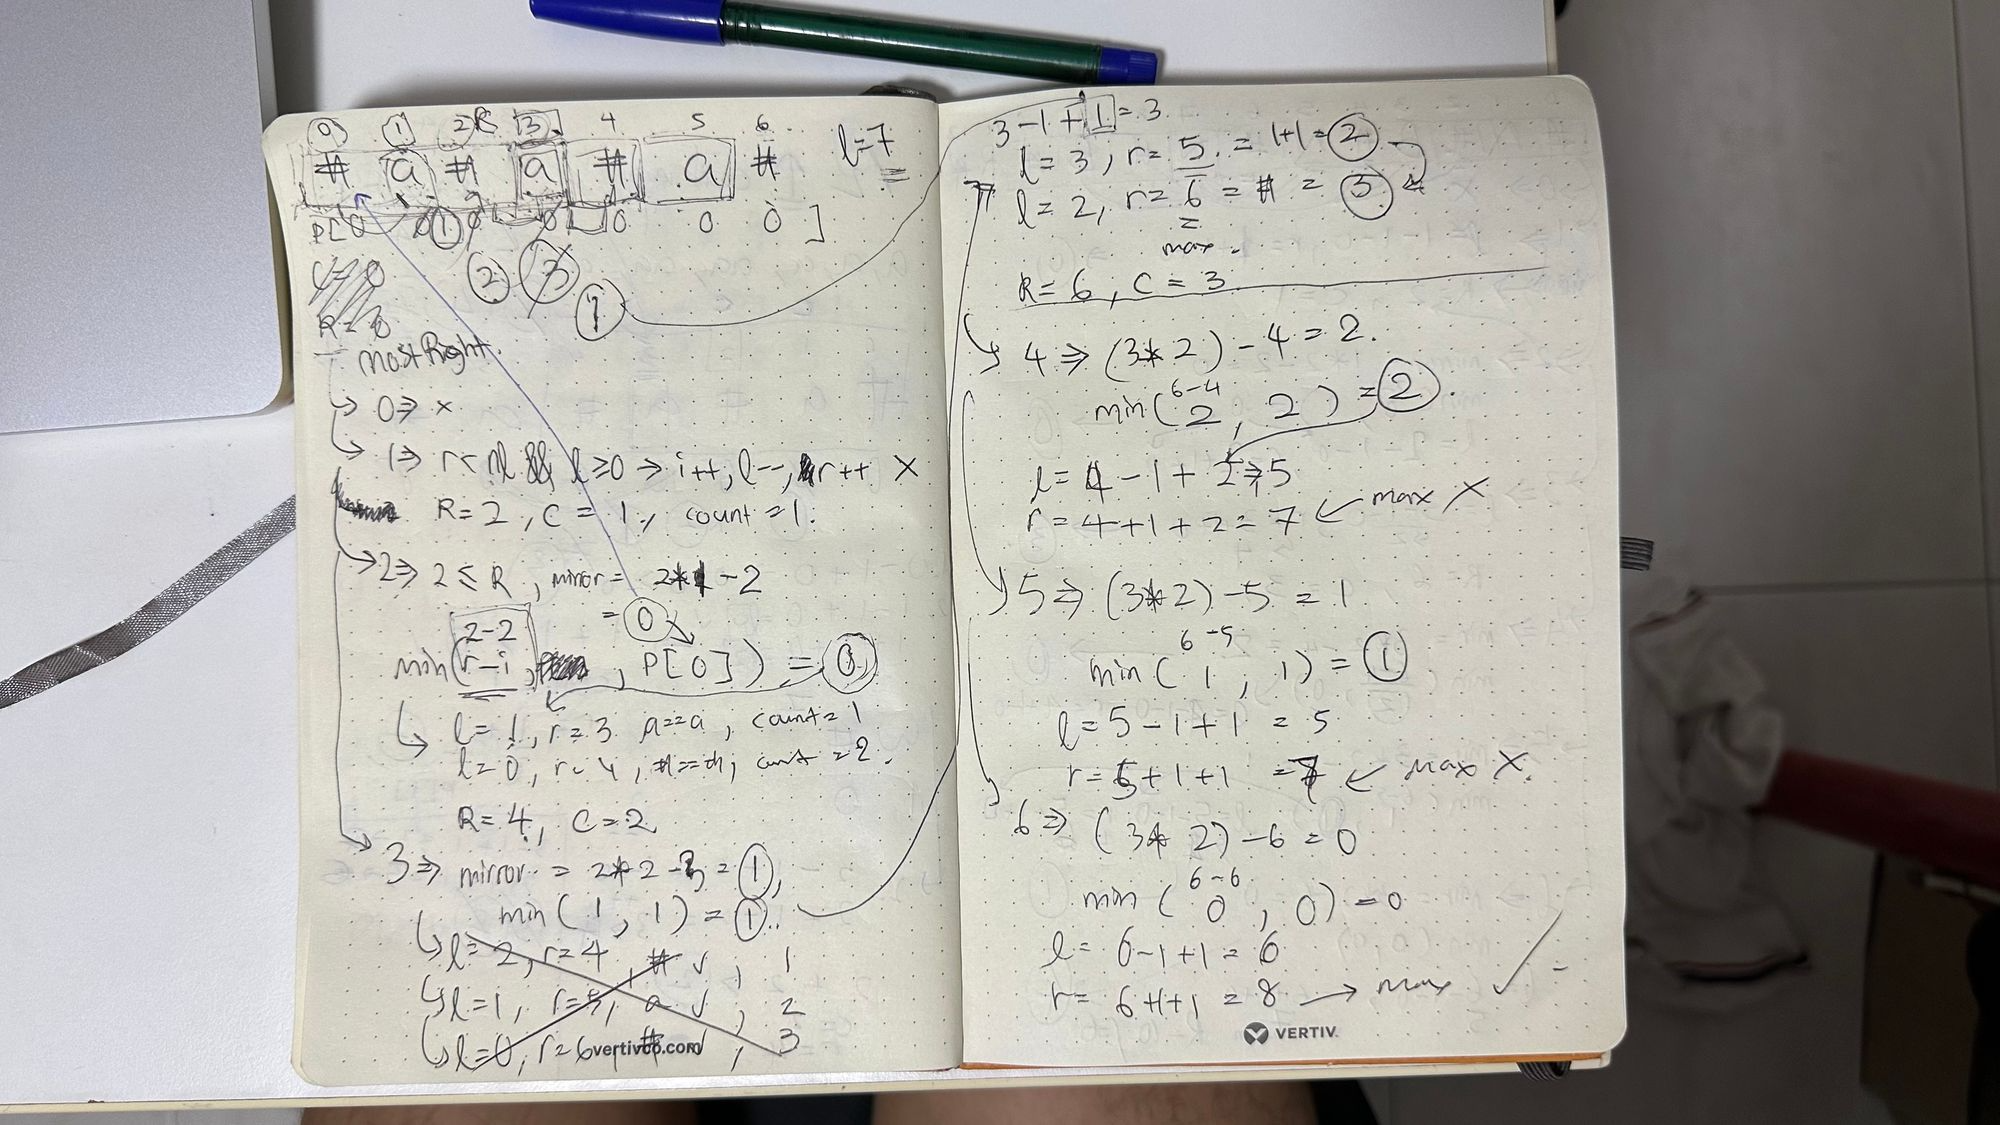 0 1 2 R 3 4 5 6
# a # a # a # l=7
P[0 0 1 0 0 0 0 0 ]
C=0 2 3
R=0 1
mostRight
0⇒ ×
1⇒ r< nl && l≥0 → i++, l--, r++ ×
R=2, C=1, count=1.
2⇒ 2≤R, mirror= 2*1-2
= 0
2-2
min(r-i, , P[0]) = 0
l=1, r=3 a==a, count=1
l=0, r=4, #==#, count=2.
R=4, C=2
3⇒ mirror = 2*2-3=1,
min(1, 1) = 1.
l=2, r=4 # √, 1
l=1, r=5, a √, 2
l=0, r=6, # √, 3
vertivco.com
3-1+1=3
l=3, r=5 = 1+1=2
l=2, r=6 = # = 3
max.
R=6, C=3
4⇒ (3*2)-4=2.
6-4
min(2, 2) =2.
l=4-1+2⇒5
r=4+1+2=7 ← max X
5⇒ (3*2)-5=1
6-5
min(1, 1) = 1
l=5-1+1 = 5
r=5+1+1 =7 ← max X.
6⇒ (3*2)-6=0
6-6
min(0, 0) =0
l= 6-1+1=6
r= 6+1+1 =8 → max √
VERTIV